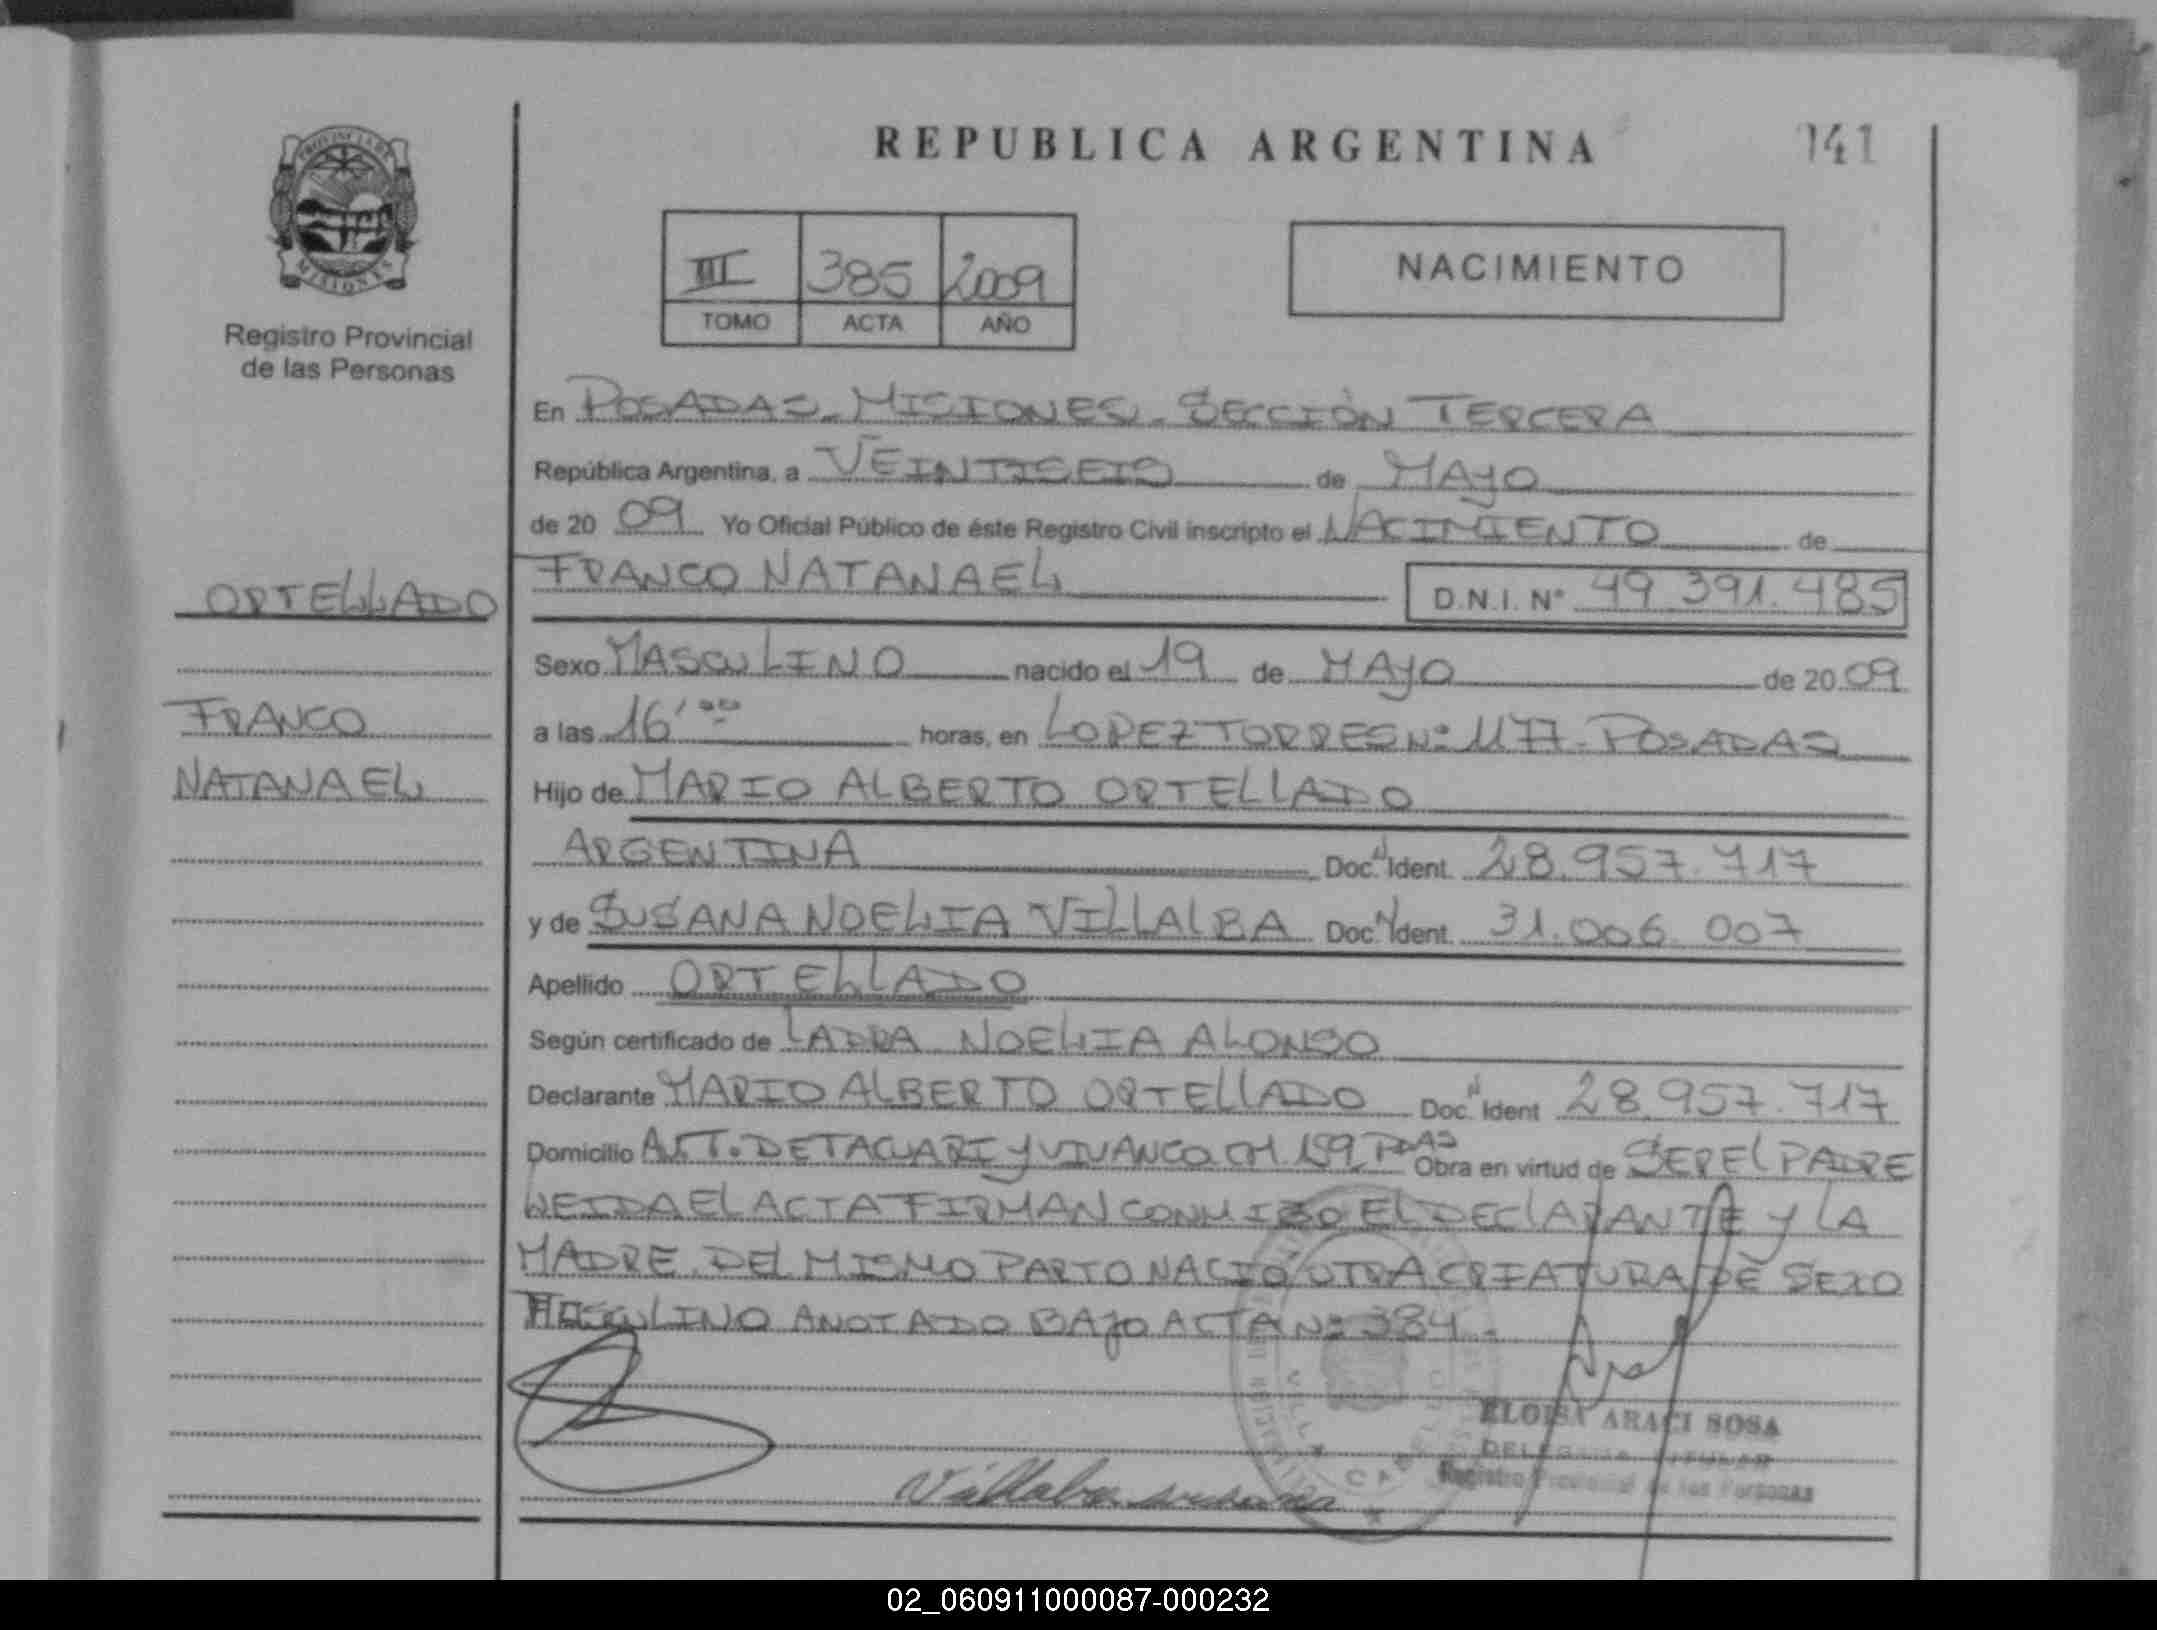 REPUBLICA ARGENTINA
141
PROVINCIA DE
MISIONES
Registro Provincial
de las Personas
III 385 2009
TOMO ACTA AÑO
NACIMIENTO
En POSADAS-MISIONES-SECCIÓN TERCERA
República Argentina, a VEINTISEIS de MAYO
de 2009 Yo Oficial Público de éste Registro Civil inscripto el NACIMIENTO de
ORTELLADO
FRANCO
NATANAEL
FRANCO NATANAEL D.N.I. N° 49.391.485
Sexo MASCULINO nacido el 19 de MAYO de 2009
a las 16'00 horas, en LOPEZ TORRES Nº 1177-POSADAS
Hijo de MARIO ALBERTO ORTELLADO
ARGENTINA Doc. Ident. 28.957.717
y de SUSANA NOELIA VILLALBA Doc. Ident. 31.006.007
Apellido ORTELLADO
Según certificado de NOELIA ALONSO
Declarante MARIO ALBERTO ORTELLADO Doc. Ident 28.957.717
Domicilio DE TACUARI Y VIVANCO CH. 159 PDAS Obra en virtud de SER EL PADRE
LEIDA EL ACTA FIRMAN CONMIGO EL DECLARANTE Y LA
MADRE. DEL MISMO PARTO NACIO OTRA CRIATURA DE SEXO
MASCULINO ANOTADO BAJO ACTA Nº 384.-
Villalba susana
ELOISA ARACI SOSA
DELEGADA TITULAR
Registro Provincial de las Personas
02_060911000087-000232